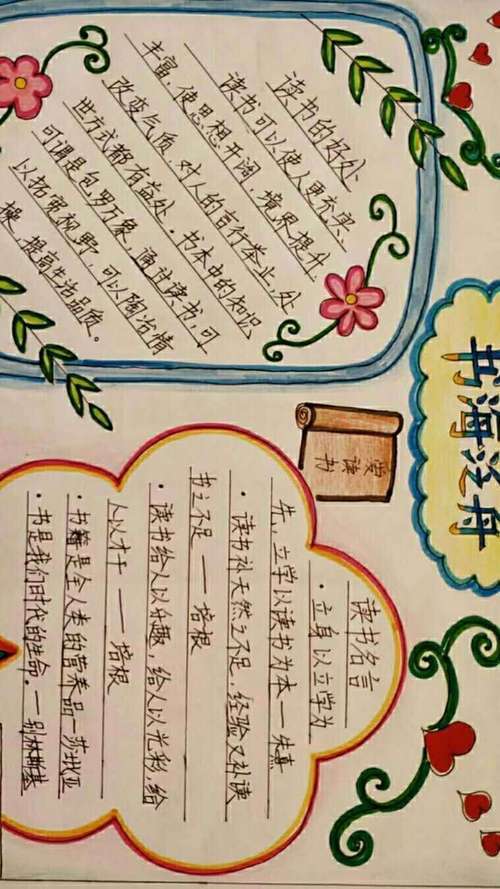 书海泛舟
读书的好处
读书可以使人更充实、
丰富,使思想开阔,境界提升,
改变气质,对人的言行举止,处
世方式都有益处。书本中的知识
可谓是包罗万象,通过读书,可
以拓宽视野,可以陶冶情
操,提高生活品质。
爱读书
读书名言
·立身以立学为
先,立学以读书为本—朱熹
·读书补天然之不足,经验又补读
书之不足——培根
·读书给人以乐趣,给人以光彩,给
人以才干——培根
·书籍是全人类的营养品—莎士比亚
·书是我们时代的生命。—别林斯基